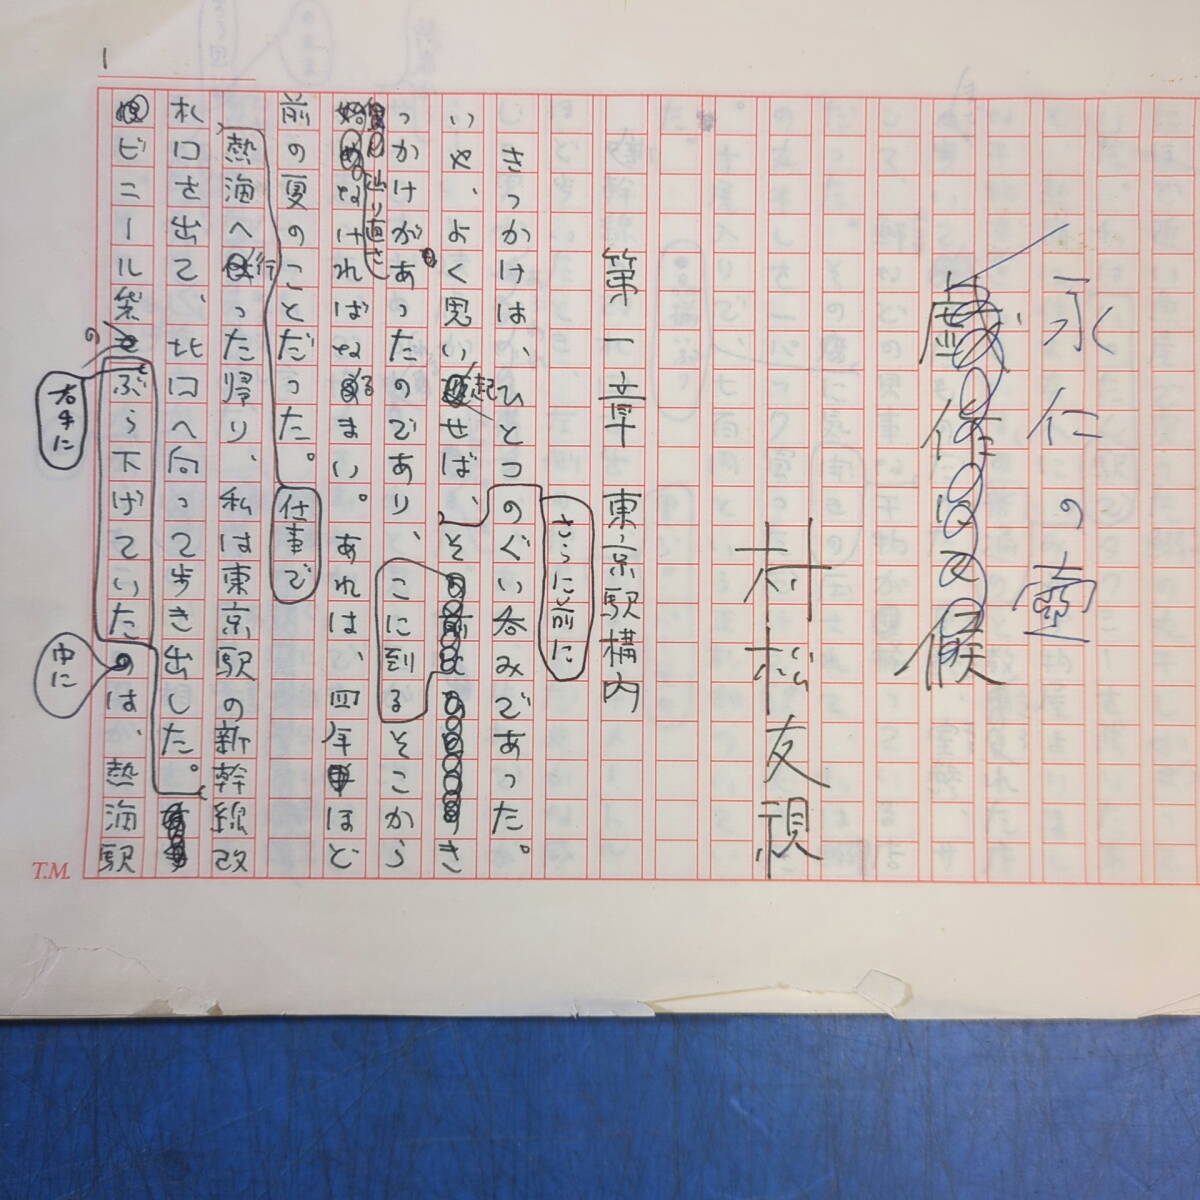 1
永仁の壷
村松友視
第一章 東京駅構内
きっかけは、ひとつのぐい呑みであった。
いや、よく思い起せば、そのさらに前にき
っかけがあったのであり、ここに到るそこから
辿り直さなければなるまい。あれは、四年ほど
前の夏のことだった。
仕事で熱海へ行った帰り、私は東京駅の新幹線改
札口を出て、北口へ向って歩き出した。
右手にぶら下げていた
ビニール袋の中には、熱海駅
T.M.